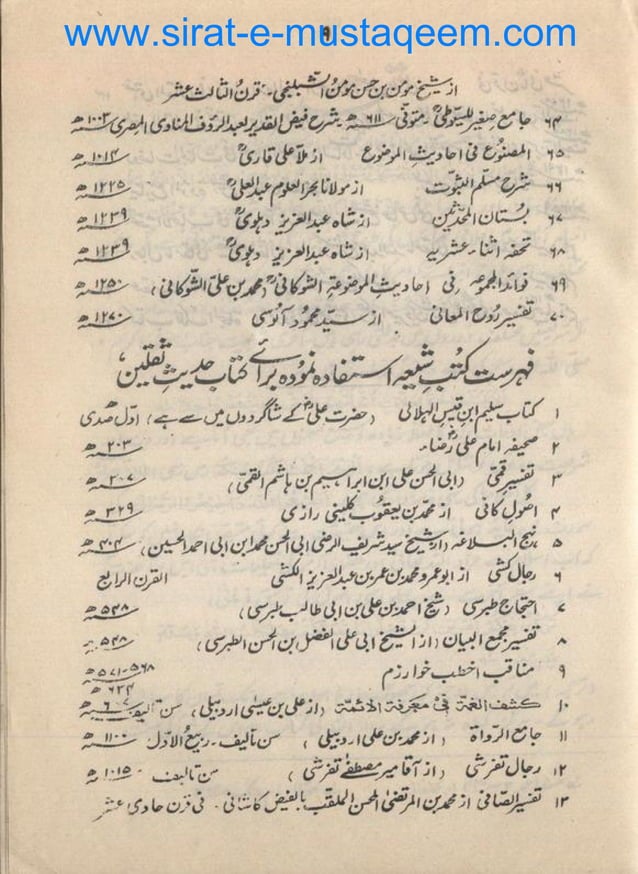 www.sirat-e-mustaqeem.com
۹
از شیخ مومن بن حسن مومن الشبلنجی۔ قرن الثالث عشر
۶۴ جامع صغیر للسیوطیؒ۔ متوفی ۹۱۱ھ بشرح فیض القدیر لعبد الرؤف المنادی المصری ۱۰۰۳ھ
۶۵ المصنوع فی احادیث الموضوع از ملا علی قاریؒ ۱۰۱۴ھ
۶۶ شرح مسلم الثبوت از مولانا بحر العلوم عبد العلیؒ ۱۲۲۵ھ
۶۷ بستان المحدثین از شاہ عبد العزیز دہلویؒ ۱۲۳۹ھ
۶۸ تحفہ اثنا۔عشریہ از شاہ عبد العزیز دہلویؒ ۱۲۳۹ھ
۶۹ فوائد المجموعہ فی احادیث الموضوعۃ الشوکانیؒ (محمد بن علی الشوکانی) ۱۲۵۰ھ
۷۰ تفسیر روح المعانی از سید محمود آلوسی ۱۲۷۰ھ
فہرست کتب شیعہ استفادہ نمودہ برائے کتاب حدیث ثقلین،
۱ کتاب سلیم ابن قیس الہلالی (حضرت علیؓ کے شاگردوں میں سے ہے) اول صدی
۲ صحیفہ امام علی رضاؓ۔ ۲۰۳ھ
۳ تفسیر قمی (ابی الحسن علی ابن ابراہیم بن ہاشم القمی) ۳۰۷ھ
۴ اصول کافی از محمد بن یعقوب کلینی رازی ۳۲۹ھ
۵ نہج البلاغہ (از شیخ سید شریف الرضی ابی الحسن محمد ابن ابی احمد الحسین) ۴۰۴ھ
۶ رجال کشی از ابو عمرو محمد بن عمر بن عبد العزیز الکشی القرن الرابع
۷ احتجاج طبرسی (شیخ احمد بن علی بن ابی طالب طبرسی) ۵۴۸ھ
۸ تفسیر مجمع البیان (از الشیخ ابی علی الفضل بن الحسن الطبرسی) ۵۴۸ھ
۹ مناقب اخطب خوارزم ۵۶۸-۵۷۱ھ
۱۰ کشف الغمۃ فی معرفۃ الائمۃ (از علی بن عیسی اردبیلی) سن تالیف
۱۱ جامع الرواۃ (از محمد بن علی اردبیلی) سن تالیف۔ ربیع الاول ۱۱۰۰ھ
۱۲ رجال تفرشی (از آقا میر مصطفے تفرشی) سن تالیف۔ ۱۰۱۵ھ
۱۳ تفسیر الصافی از محمد بن المرتضی المحسن الملقب بالفیض کاشانی۔ فی قرن حادی عشر